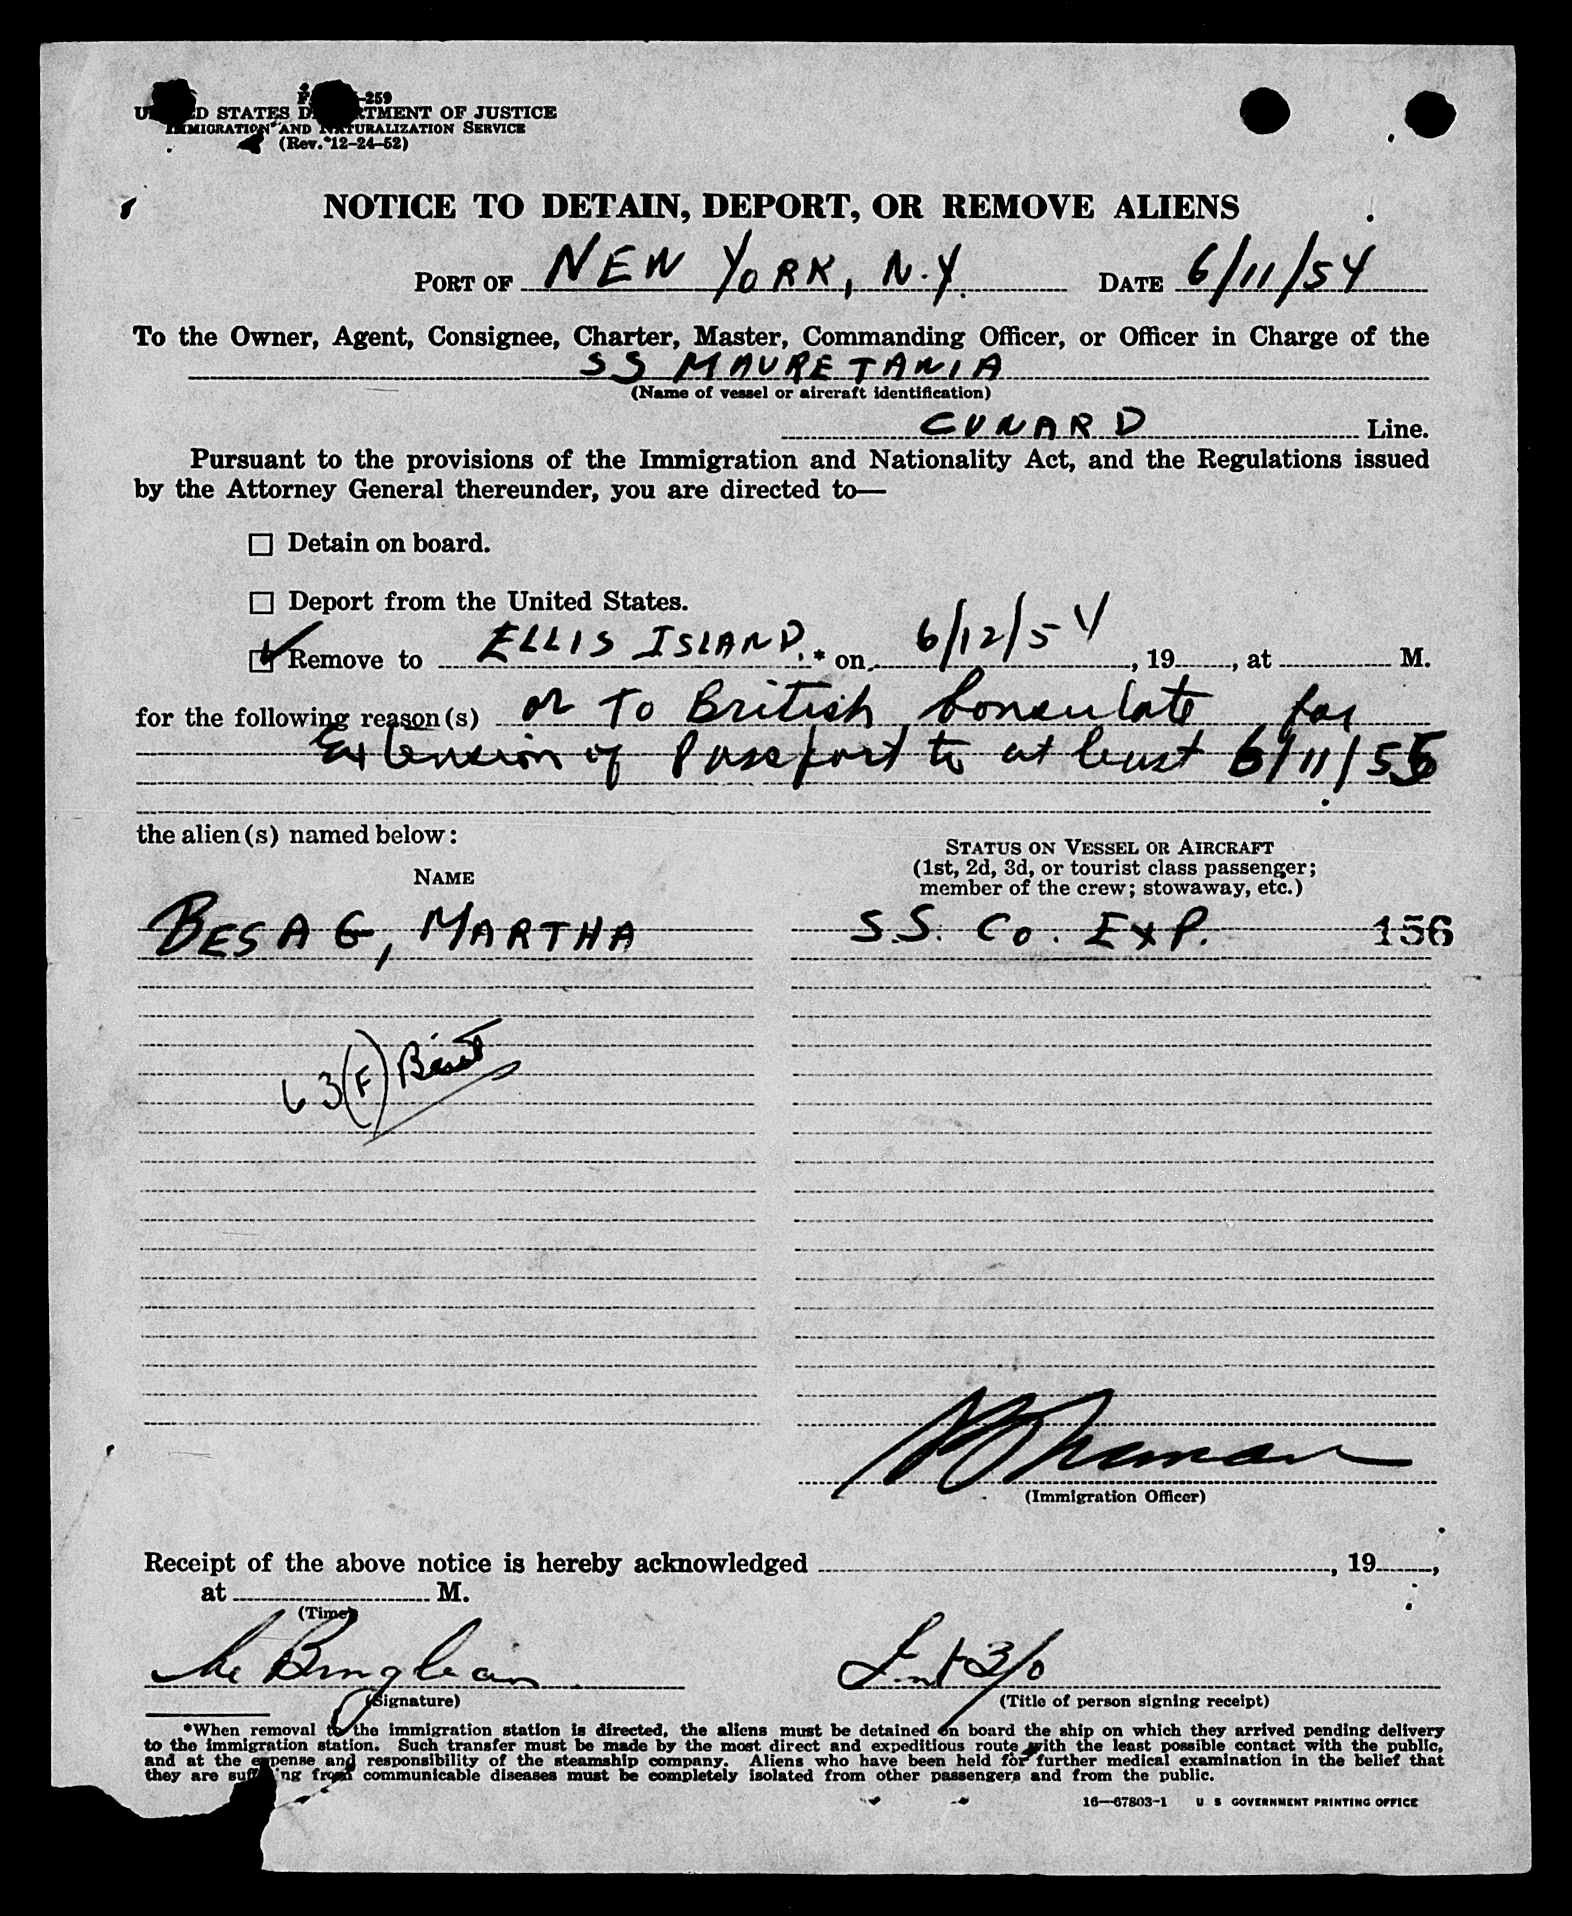 -259
D STATES D TMENT OF JUSTICE
IMMIGRATION AND NATURALIZATION SERVICE
(Rev. 12-24-52)
NOTICE TO DETAIN, DEPORT, OR REMOVE ALIENS
PORT OF NEW YORK, N.Y. DATE 6/11/54
To the Owner, Agent, Consignee, Charter, Master, Commanding Officer, or Officer in Charge of the
SS MAURETANIA
(Name of vessel or aircraft identification)
CUNARD Line.
Pursuant to the provisions of the Immigration and Nationality Act, and the Regulations issued
by the Attorney General thereunder, you are directed to—
☐ Detain on board.
☐ Deport from the United States.
☑ Remove to ELLIS ISLAND.* on 6/12/54, 19, at M.
for the following reason(s) or To British Consulate for
Extension of Passport to at least 6/11/55
the alien(s) named below:
STATUS ON VESSEL OR AIRCRAFT
(1st, 2d, 3d, or tourist class passenger;
member of the crew; stowaway, etc.)
NAME
BESAG, MARTHA S.S. Co. EXP. 156
63 (F)
(Immigration Officer)
Receipt of the above notice is hereby acknowledged , 19 ,
at M.
(Time)
(Signature) (Title of person signing receipt)
*When removal to the immigration station is directed, the aliens must be detained on board the ship on which they arrived pending delivery
to the immigration station. Such transfer must be made by the most direct and expeditious route with the least possible contact with the public,
and at the expense and responsibility of the steamship company. Aliens who have been held for further medical examination in the belief that
they are suffering from communicable diseases must be completely isolated from other passengers and from the public.
16—67803-1 U S GOVERNMENT PRINTING OFFICE